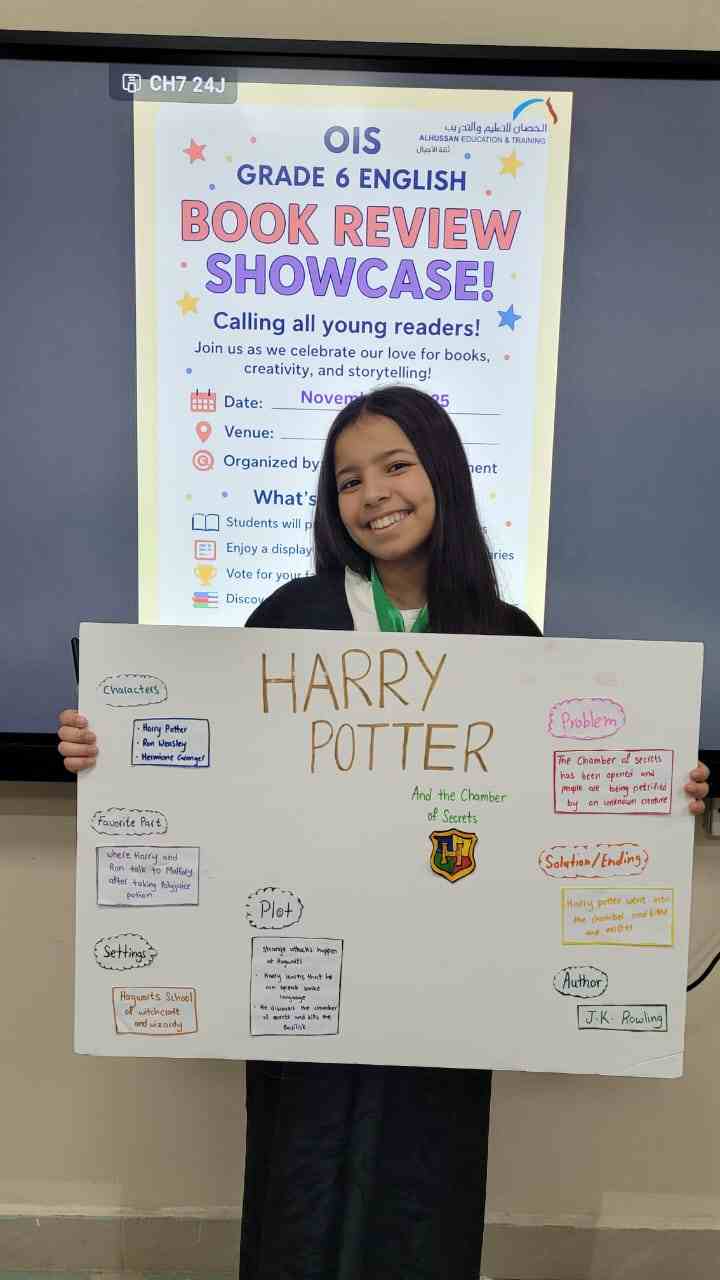 CH7 24J
الحصان للتعليم والتدريب
ALHUSSAN EDUCATION & TRAINING
ثقة الأجيال
OIS
GRADE 6 ENGLISH
BOOK REVIEW
SHOWCASE!
Calling all young readers!
Join us as we celebrate our love for books,
creativity, and storytelling!
Date: Novem 25
Venue:
Organized by ment
What's
Students will p s
Enjoy a display aries
Vote for your fa
Discov
HARRY
POTTER
And the Chamber
of Secrets
H
Characters
· Harry Potter
· Ron Weasley
· Hermione
Favorite Part
where Harry and
Ron talk to Malfoy
after taking Polyjuice
potion
Settings
Hogwarts School
of witchcraft
and wizardy
Plot
Strange attacks happen
at Hogwarts
· Harry learns that he
can speak snake
language
· He discovers the chamber
of secrets and kills the
Basilisk
Problem
The Chamber of secrets
has been opened and
people are being petrified
by an unknown creature
Solution/Ending
Harry potter went into
the chamber and killed
Author
J.K. Rowling